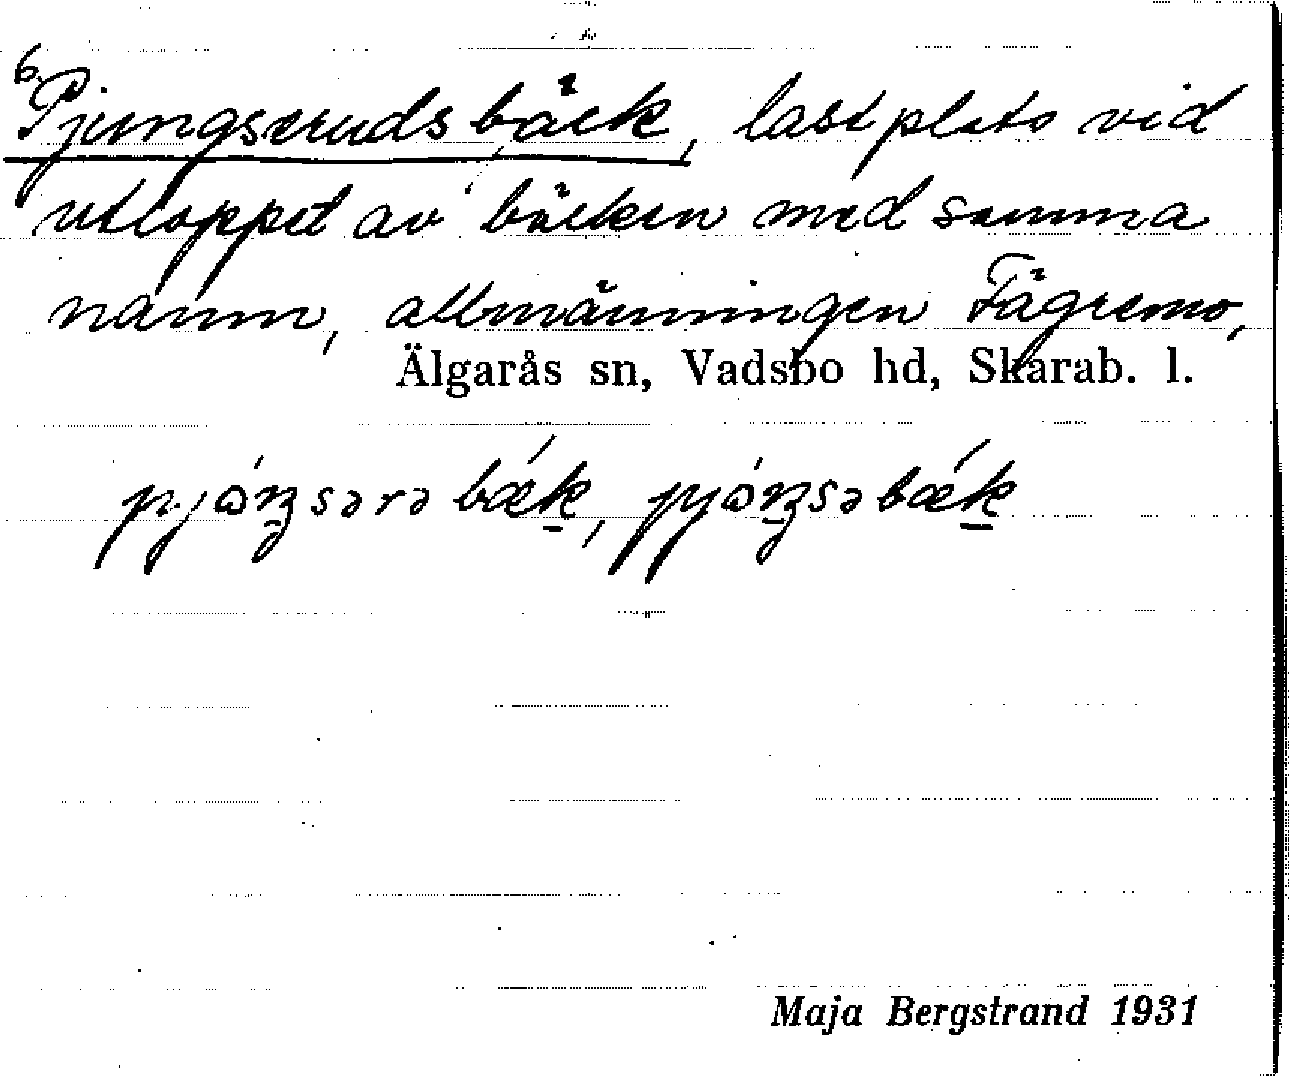 6.
Pjungserudsbäck, lastplats vid
utloppet av bäcken med samma
namn, allmänningen Fägremo,
Älgarås sn, Vadsbo hd, Skarab. l.
Maja Bergstrand 1931